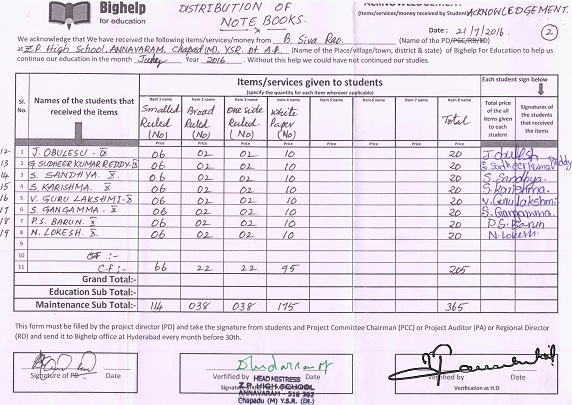 Bighelp
for education
DISTRIBUTION OF
NOTE BOOKS.
ACKNOWLEDGEMENT
(Items/services/money received by Students)
ACKNOWLEDGEMENT.
Date: 21/7/2016
2
We acknowledge that We have received the following items/services/money from B. Siva Rao (Name of the PD/PCC/RD/BD)
at Z.P High School, ANNAVARAM, Chapad(M), YSR. Dt. A.P. (Name of the Place/village/town, district & state) of Bighelp For Education to help us
continue our education in the month July Year 2016. Without this help we could have not continued our studies.
Sl. No.
Names of the students that received the items
Items/services given to students
(specify the quantity for each item wherever applicable)
Each student sign below
Item 1 name Item 2 name Item 3 name Item 4 name Item 5 name Item 6 name Item 7 name Item 8 name
Smalled Ruled (No) Broad Ruled (No) One side Ruled (No) White Paper (No) Total
Total price of the all items given to each student
Signatures of the students that received the items
Price Price Price Price Price Price Price Price
12 1 J. OBULESU - IX 06 02 02 10 20 J. Obulesh
13 2 G. SUDHEER KUMAR REDDY-IX 06 02 02 10 20 G. Sudheerkumar Reddy
14 3 S. SANDHYA. X. 06 02 02 10 20 S. Sandhya
15 4 S. KARISHMA. X 06 02 02 10 20 S. Karishma.
16 5 V. GURU LAKSHMI-X 06 02 02 10 20 V. Guru Lakshmi
17 6 S. GANGAMMA. X 06 02 02 10 20 S. Gangamma
18 7 P.S. BARUN. X 06 02 02 10 20 P.S. Barun
19 8 N. LOKESH. X 06 02 02 10 20 N. Lokesh.
9
10
11 C.F :- 66 22 22 95 205
Grand Total:-
Education Sub Total:-
Maintenance Sub Total:- 114 038 038 175 365
This form must be filled by the project director (PD) and take the signature from students and Project Committee Chairman (PCC) or Project Auditor (PA) or Regional Director
(RD) and send it to Bighelp office at Hyderabad every month before 30th.
Signature of PD Date
Verified by Date
HEADMISTRESS
Z.P. HIGH SCHOOL
ANNAVARAM - 516 362
Chapadu (M) Y.S.R. (Dt.)
Verified by Date
Verification at H.O